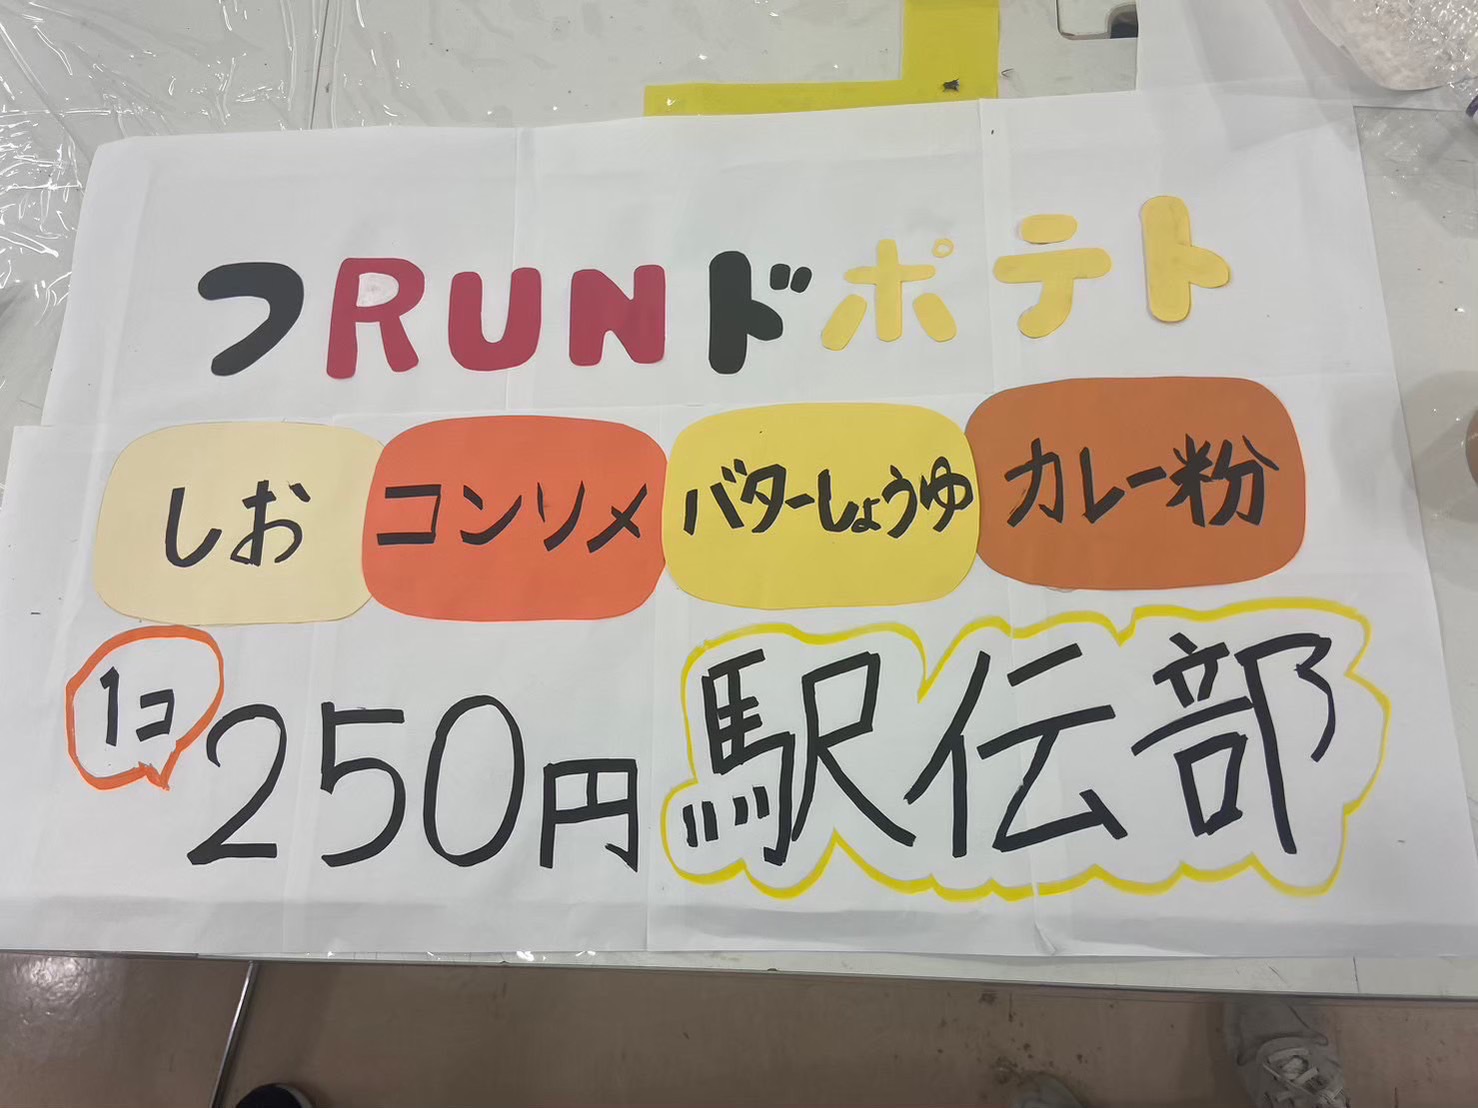 フRUNドポテト
しお コンソメ バターしょうゆ カレー粉
1コ 250円 駅伝部